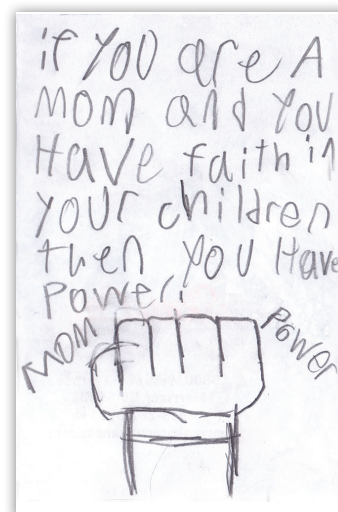 if YOU are A
MOM and YOU
Have faith in
YOUr children
then YOU Have
Power!
MOM
Power